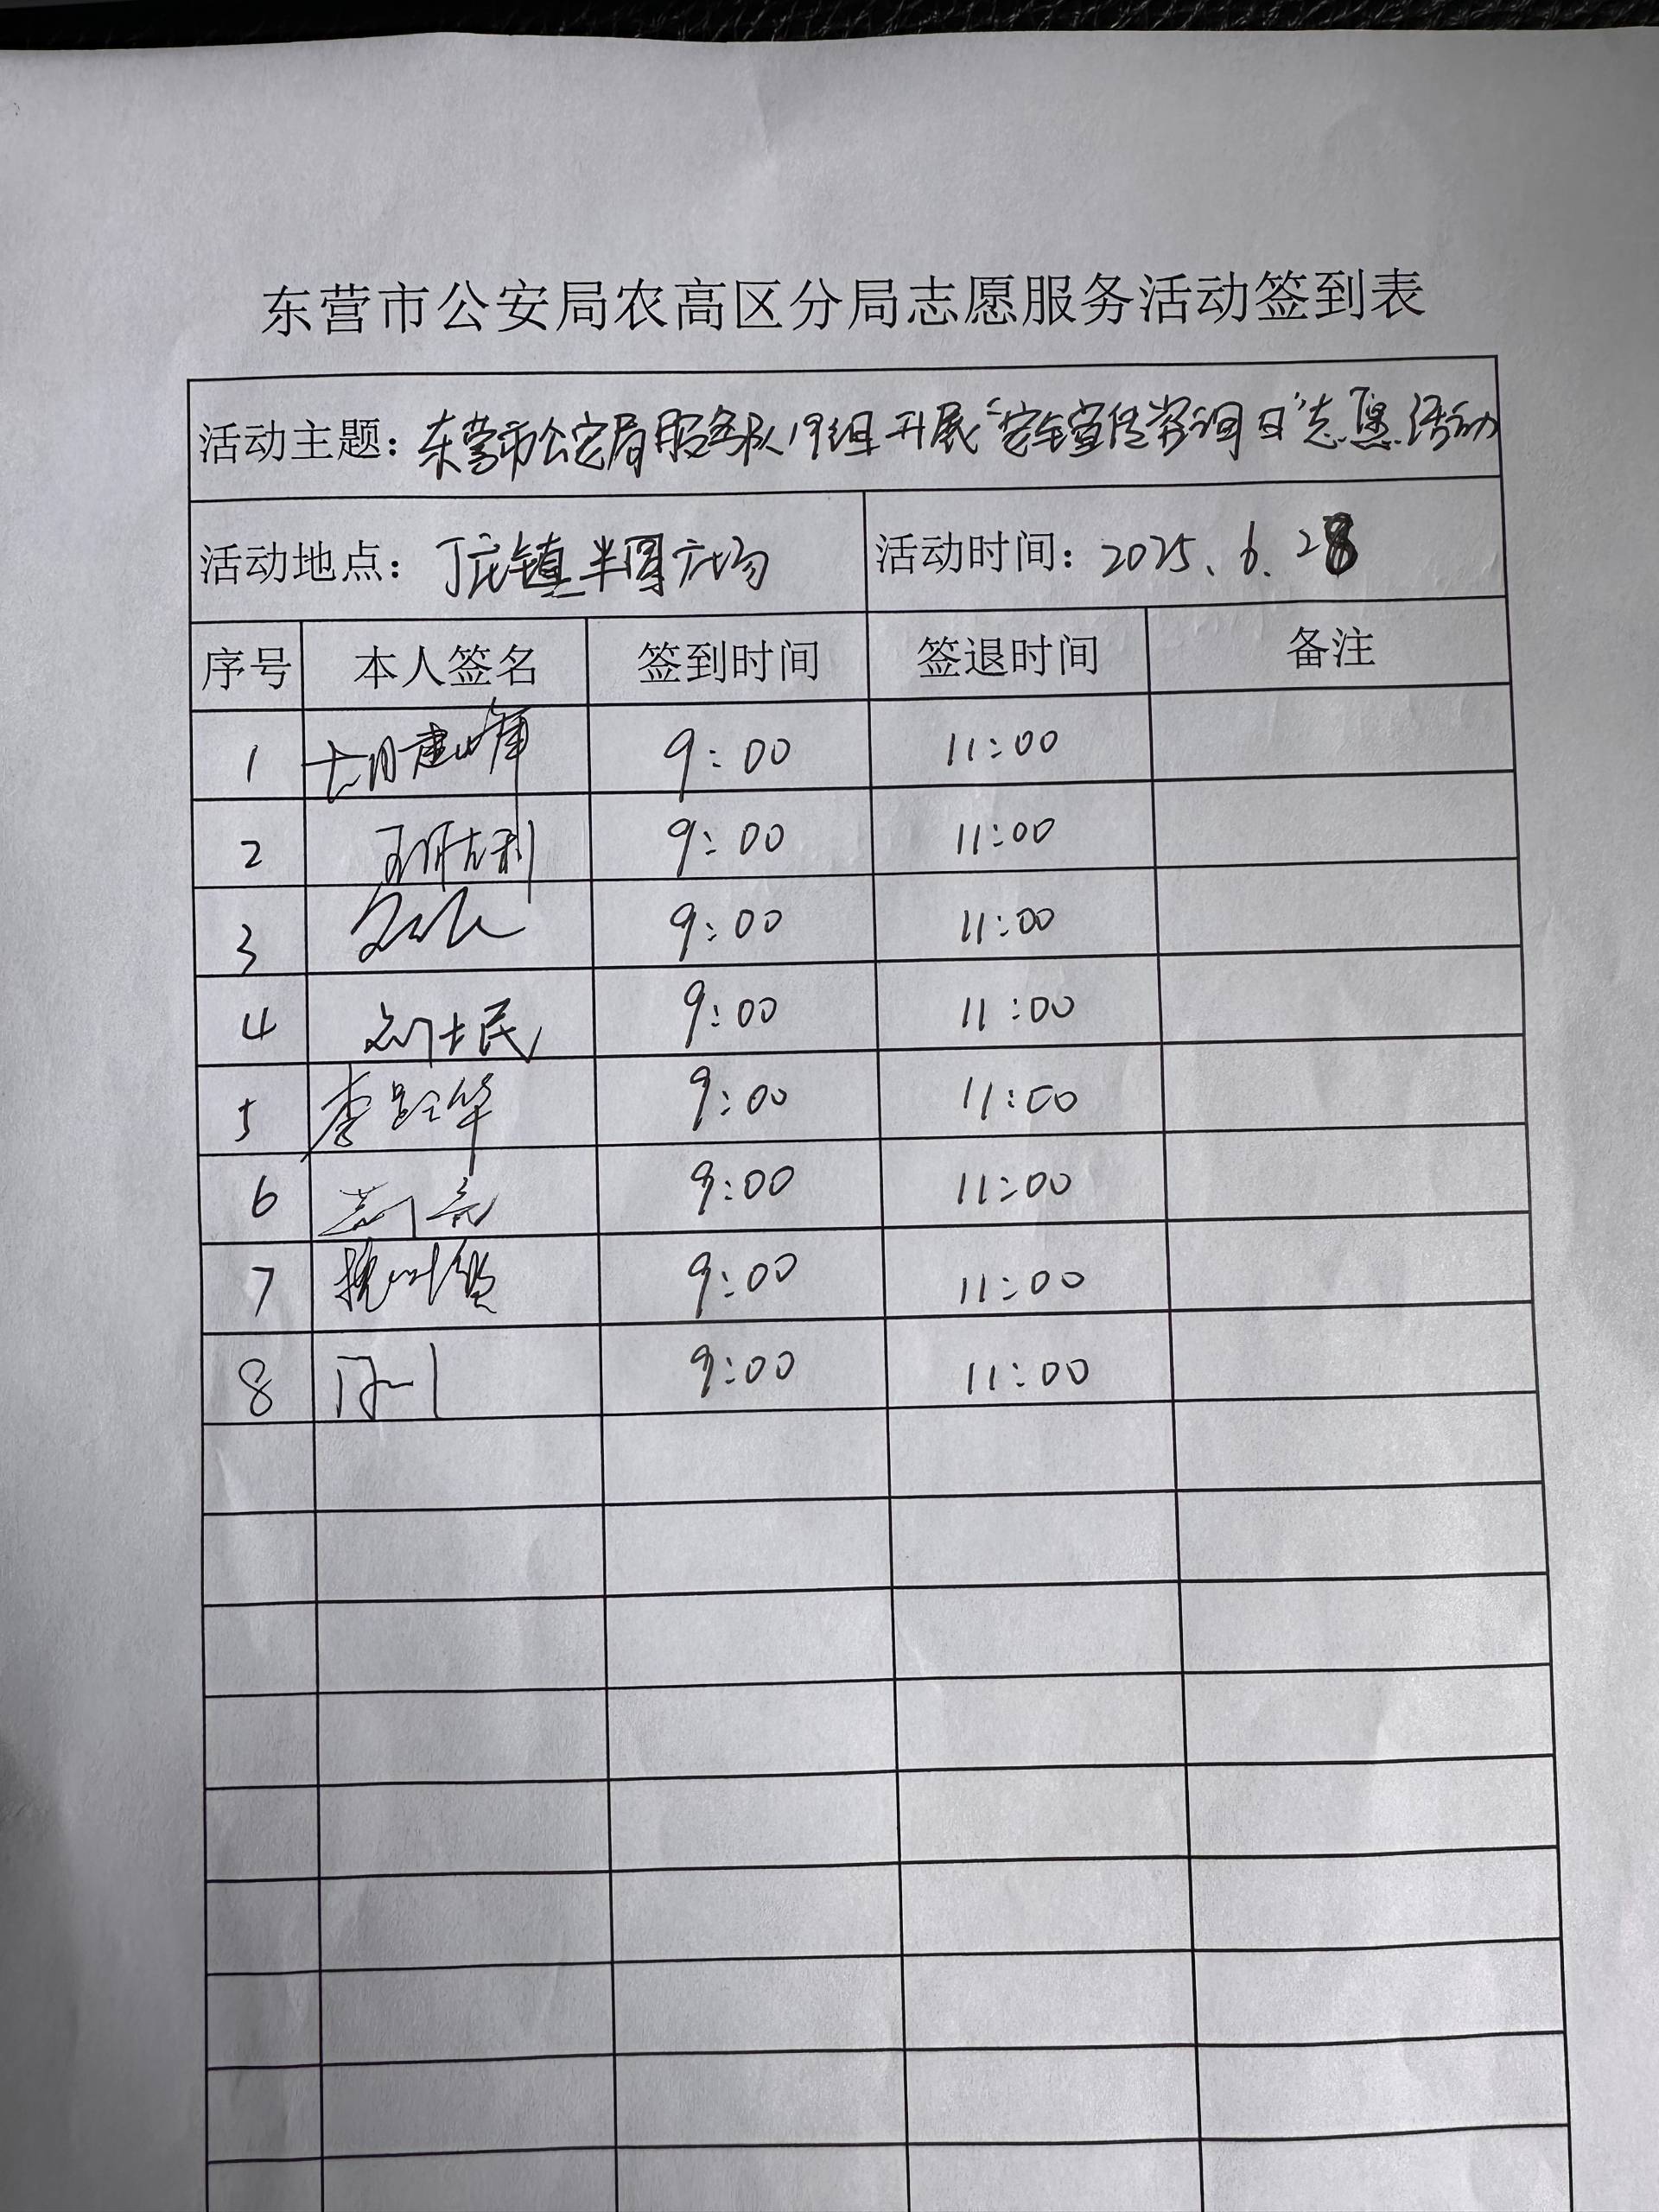 东营市公安局农高区分局志愿服务活动签到表
活动主题：东营市公安局服务队19组开展“安全宣传咨询日”志愿活动
活动地点：丁庄镇半圆广场 活动时间：2025.6.28
序号 本人签名 签到时间 签退时间 备注
1 建峰 9:00 11:00
2 9:00 11:00
3 9:00 11:00
4 刘士民 9:00 11:00
5 李 华 9:00 11:00
6 9:00 11:00
7 9:00 11:00
8 9:00 11:00